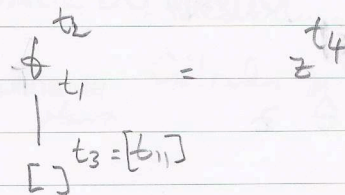 t₂
t₁ = z t₄
[ ] t₃ = [t₁₁]